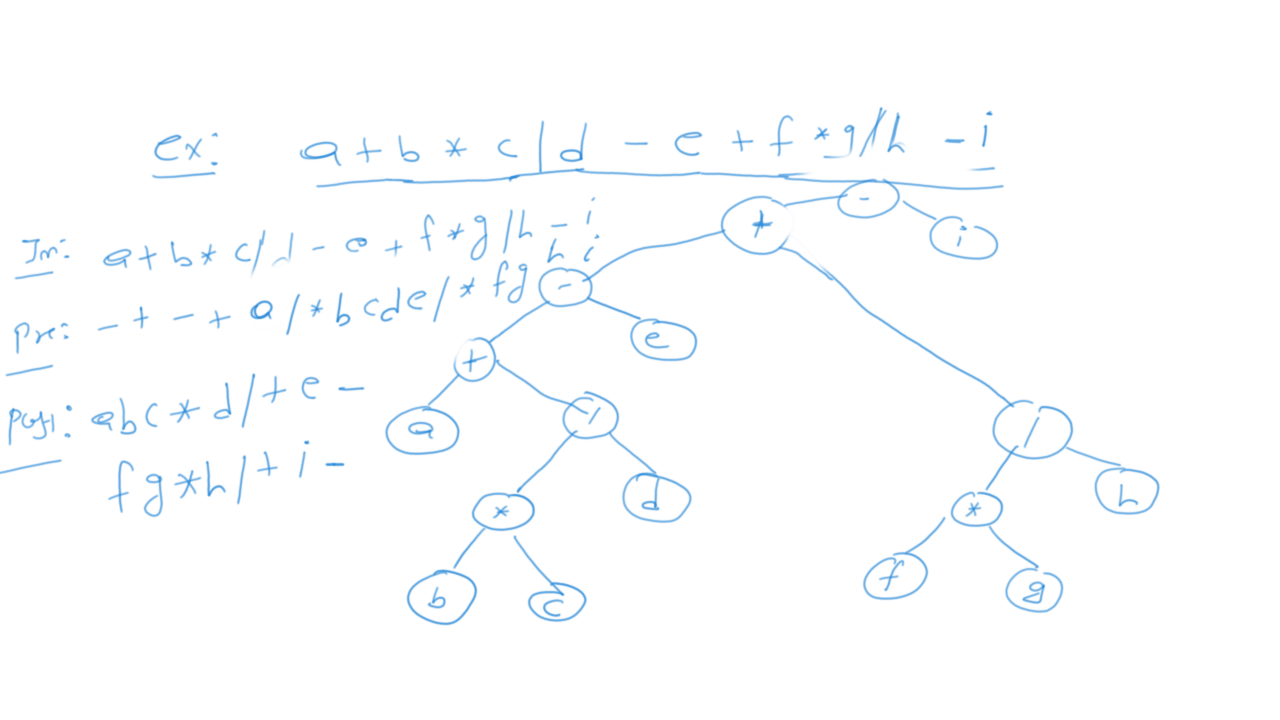 ex: a + b * c / d - e + f * g / h - i
In: a + b * c / d - e + f * g / h - i
Pre: - + - + a / * b c d e / * f g h i
Post: a b c * d / + e -
f g * h / + i -
-
+
i
-
e
+
a
/
/
h
*
d
*
f
g
b
c